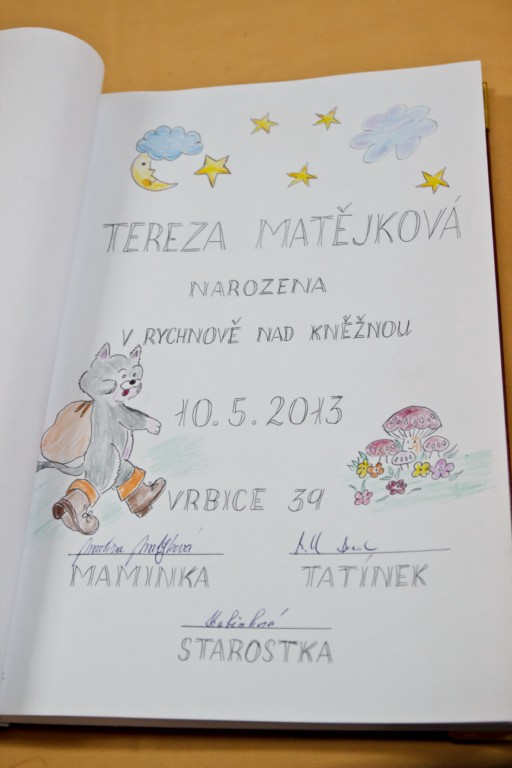 TEREZA MATĚJKOVÁ
NAROZENA
V RYCHNOVĚ NAD KNĚŽNOU
10.5.2013
VRBICE 39
MAMINKA
TATÍNEK
STAROSTKA